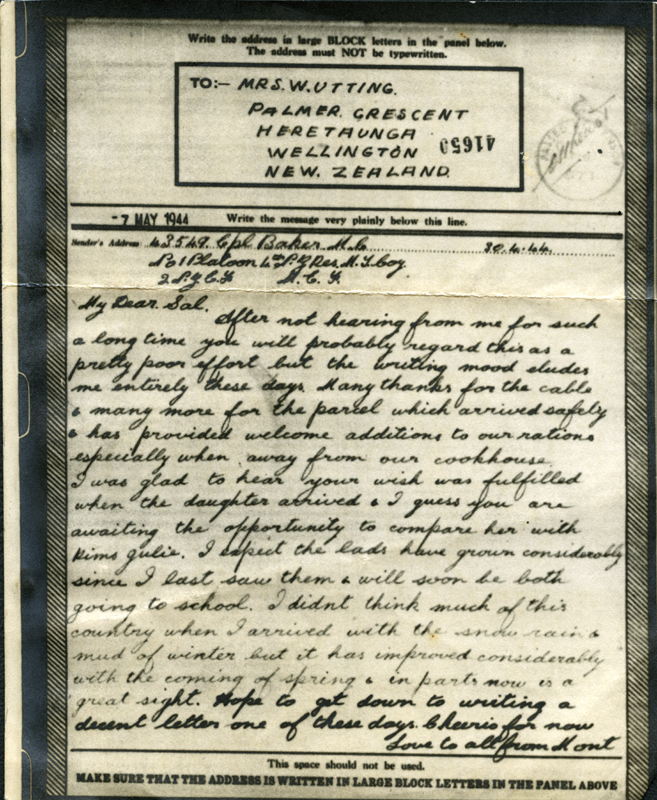 Write the address in large BLOCK letters in the panel below.
The address must NOT be typewritten.
TO:- MRS. W. UTTING.
PALMER. CRESCENT
HERETAUNGA
WELLINGTON
NEW. ZEALAND.
41650
-7 MAY 1944 Write the message very plainly below this line.
Sender's Address 43549. Cpl. Baker M. C. 30.4.44.
B1 Platoon 4th N.Z. Res. M.T. Coy
2 N.Z.E.F. M.E.F.
My Dear Sal.
After not hearing from me for such
a long time you will probably regard this as a
pretty poor effort but the writing mood eludes
me entirely these days. Many thanks for the cable
& many more for the parcel which arrived safely
& has provided welcome additions to our rations
especially when away from our cookhouse.
I was glad to hear your wish was fulfilled
when the daughter arrived & I guess you are
awaiting the opportunity to compare her with
Kims Julie. I expect the lads have grown considerably
since I last saw them & will soon be both
going to school. I didnt think much of this
country when I arrived with the snow rain &
mud of winter but it has improved considerably
with the coming of spring & in parts now is a
great sight. Hope to get down to writing a
decent letter one of these days. Cheerio for now
Love to all from Mont
This space should not be used.
MAKE SURE THAT THE ADDRESS IS WRITTEN IN LARGE BLOCK LETTERS IN THE PANEL ABOVE